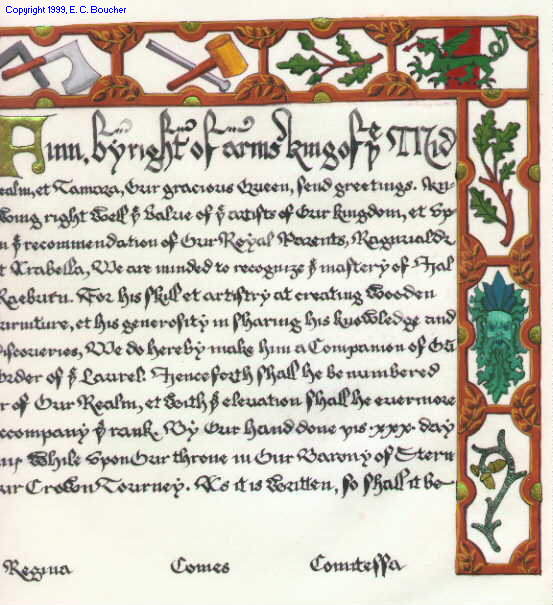 Copyright 1999, E. C. Boucher
Finn, by right of arms king of ye Mid
ealm, et Tamara, Our gracious Queen, send greetings. Kn-
owing right well ye value of ye artists of Our kingdom, et up
n ye recommendation of Our Royal Parents, Ragnvaldr
t Arabella, We are minded to recognize ye mastery of Hal
Raeburn. For his skill et artistry at creating wooden
urniture, et his generosity in sharing his knowledge and
discoveries, We do hereby make him a Companion of Our
Order of ye Laurel. Henceforth shall he be numbered
r of Our Realm, et with ye elevation shall he evermore
ccompany ye rank. By Our hand done yis ·xxx· day
While upon Our throne in Our Barony of Stern
ur Crown Tourney. As it is written, so shall it be
Regina Comes Comitessa